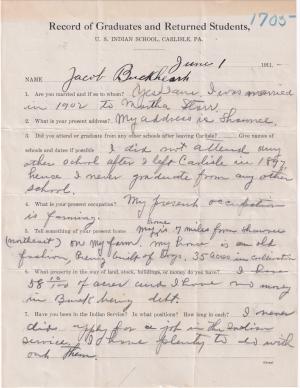 1705-
Record of Graduates and Returned Students,
U. S. INDIAN SCHOOL, CARLISLE, PA.
June 1 1911.
NAME Jacob Buckheart
1. Are you married and if so to whom? Yes Sam, I was married
in 1902 to Martha Starr.
2. What is your present address? My address is Shawnee.
3. Did you attend or graduate from any other schools after leaving Carlisle? Give names
of schools and dates if possible I did not attend any
other school after I left Carlisle in 1897
hence I never graduate from any other
school.
4. What is your present occupation? My present occupation
is farming.
5. Tell something of your present home My home is 7 miles from Shawnee
(northeast) on my farm. my house is an old
fashion, being built of logs, 35 acres in cultivation
6. What property in the way of land, stock, buildings, or money do you have? I have
58 acres and I have no money
in Bank being debt.
7. Have you been in the Indian Service? In what positions? How long in each? I never
did apply for a job in the Indian
service, I have plenty to do with
out them.